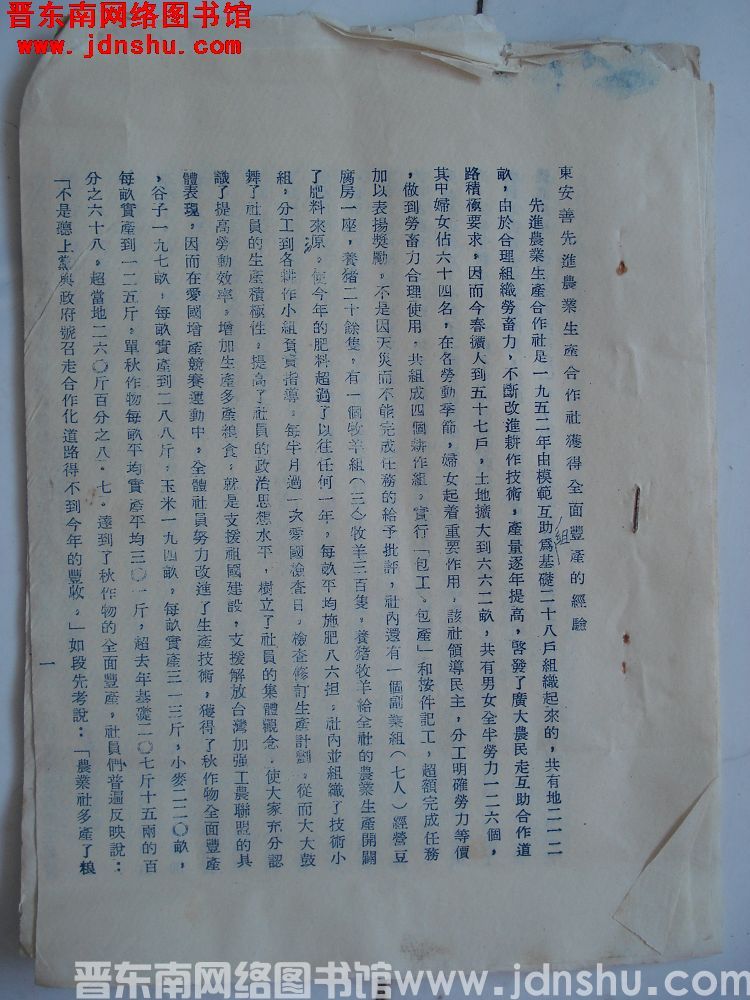 晋东南网络图书馆
www.jdnshu.com
東安善先進農業生產合作社獲得全面豐產的經驗
先進農業生產合作社是一九五二年由模範互助組爲基礎二十八戶組織起來的，共有地二一二
畝，由於合理組織勞畜力，不斷改進耕作技術，產量逐年提高，啓發了廣大農民走互助合作道
路積極要求。因而今春擴大到五十七戶，土地擴大到六六二畝，共有男女全半勞力一二六個，
其中婦女佔六十四名，在各勞動季節，婦女起着重要作用，該社領導民主，分工明確勞力等價
，做到勞畜力合理使用，共組成四個耕作組。實行「包工、包產」和按件記工，超額完成任務
加以表揚獎勵。不是因天災而不能完成任務的給予批評，社內還有一個副業組（七人）經營豆
腐房一座，養猪二十餘隻，有一個牧羊組（三人）牧羊三百隻。養猪牧羊給全社的農業生產開闢
了肥料來源。使今年的肥料超過了以往任何一年，每畝平均施肥八六担。社內並組織了技術小
組，分工到各耕作小組負責指導。每半月過一次愛國檢查日，檢查修訂生產計劃。從而大大鼓
舞了社員的生產積極性。提高了社員的政治思想水平，樹立了社員的集體觀念。使大家充分認
識了提高勞動效率。增加生產多產粮食。就是支援祖國建設，支援解放台灣加强工農聯盟的具
體表現，因而在愛國增產競賽運動中，全體社員努力改進了生產技術，獲得了秋作物全面豐產
，谷子一九七畝，每畝實產到二八八斤，玉米一九四畝，每畝實產三一三斤，小麥二二〇畝，
每畝實產到一二五斤，單秋作物每畝平均實產平均三〇一斤，超去年基礎二〇七斤十五兩的百
分之六十八。超當地二六〇斤百分之八．七。達到了秋作物的全面豐產，社員們普遍反映說：
「不是聽上黨與政府號召走合作化道路得不到今年的豐收。」如段先考說：「農業社多產了粮
一
晋东南网络图书馆www.jdnshu.com